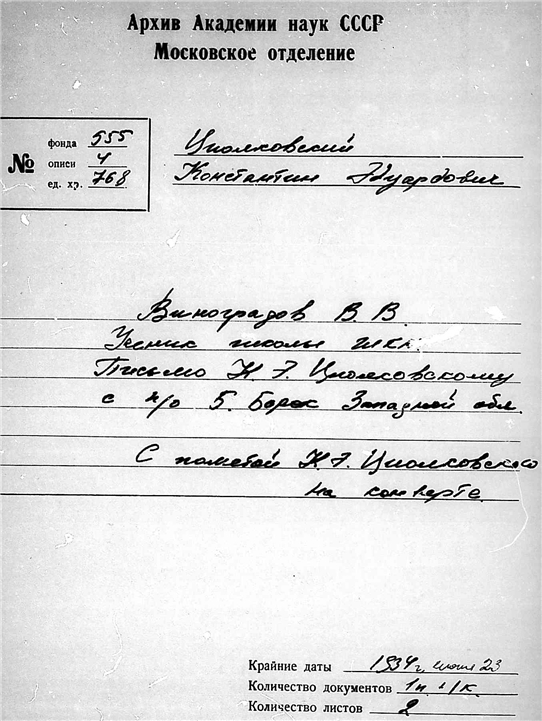 Архив Академии наук СССР
Московское отделение
№
фонда 555
описи 4
ед. хр. 768
Циолковский
Константин Эдуардович
Виноградов В. В.
Ученик школы ШКМ.
Письмо К. Э. Циолковскому
с п/о Б. Борок Западной обл.
С пометой К. Э. Циолковского
на конверте.
Крайние даты 1934 г, 23
Количество документов 1п
Количество листов 2